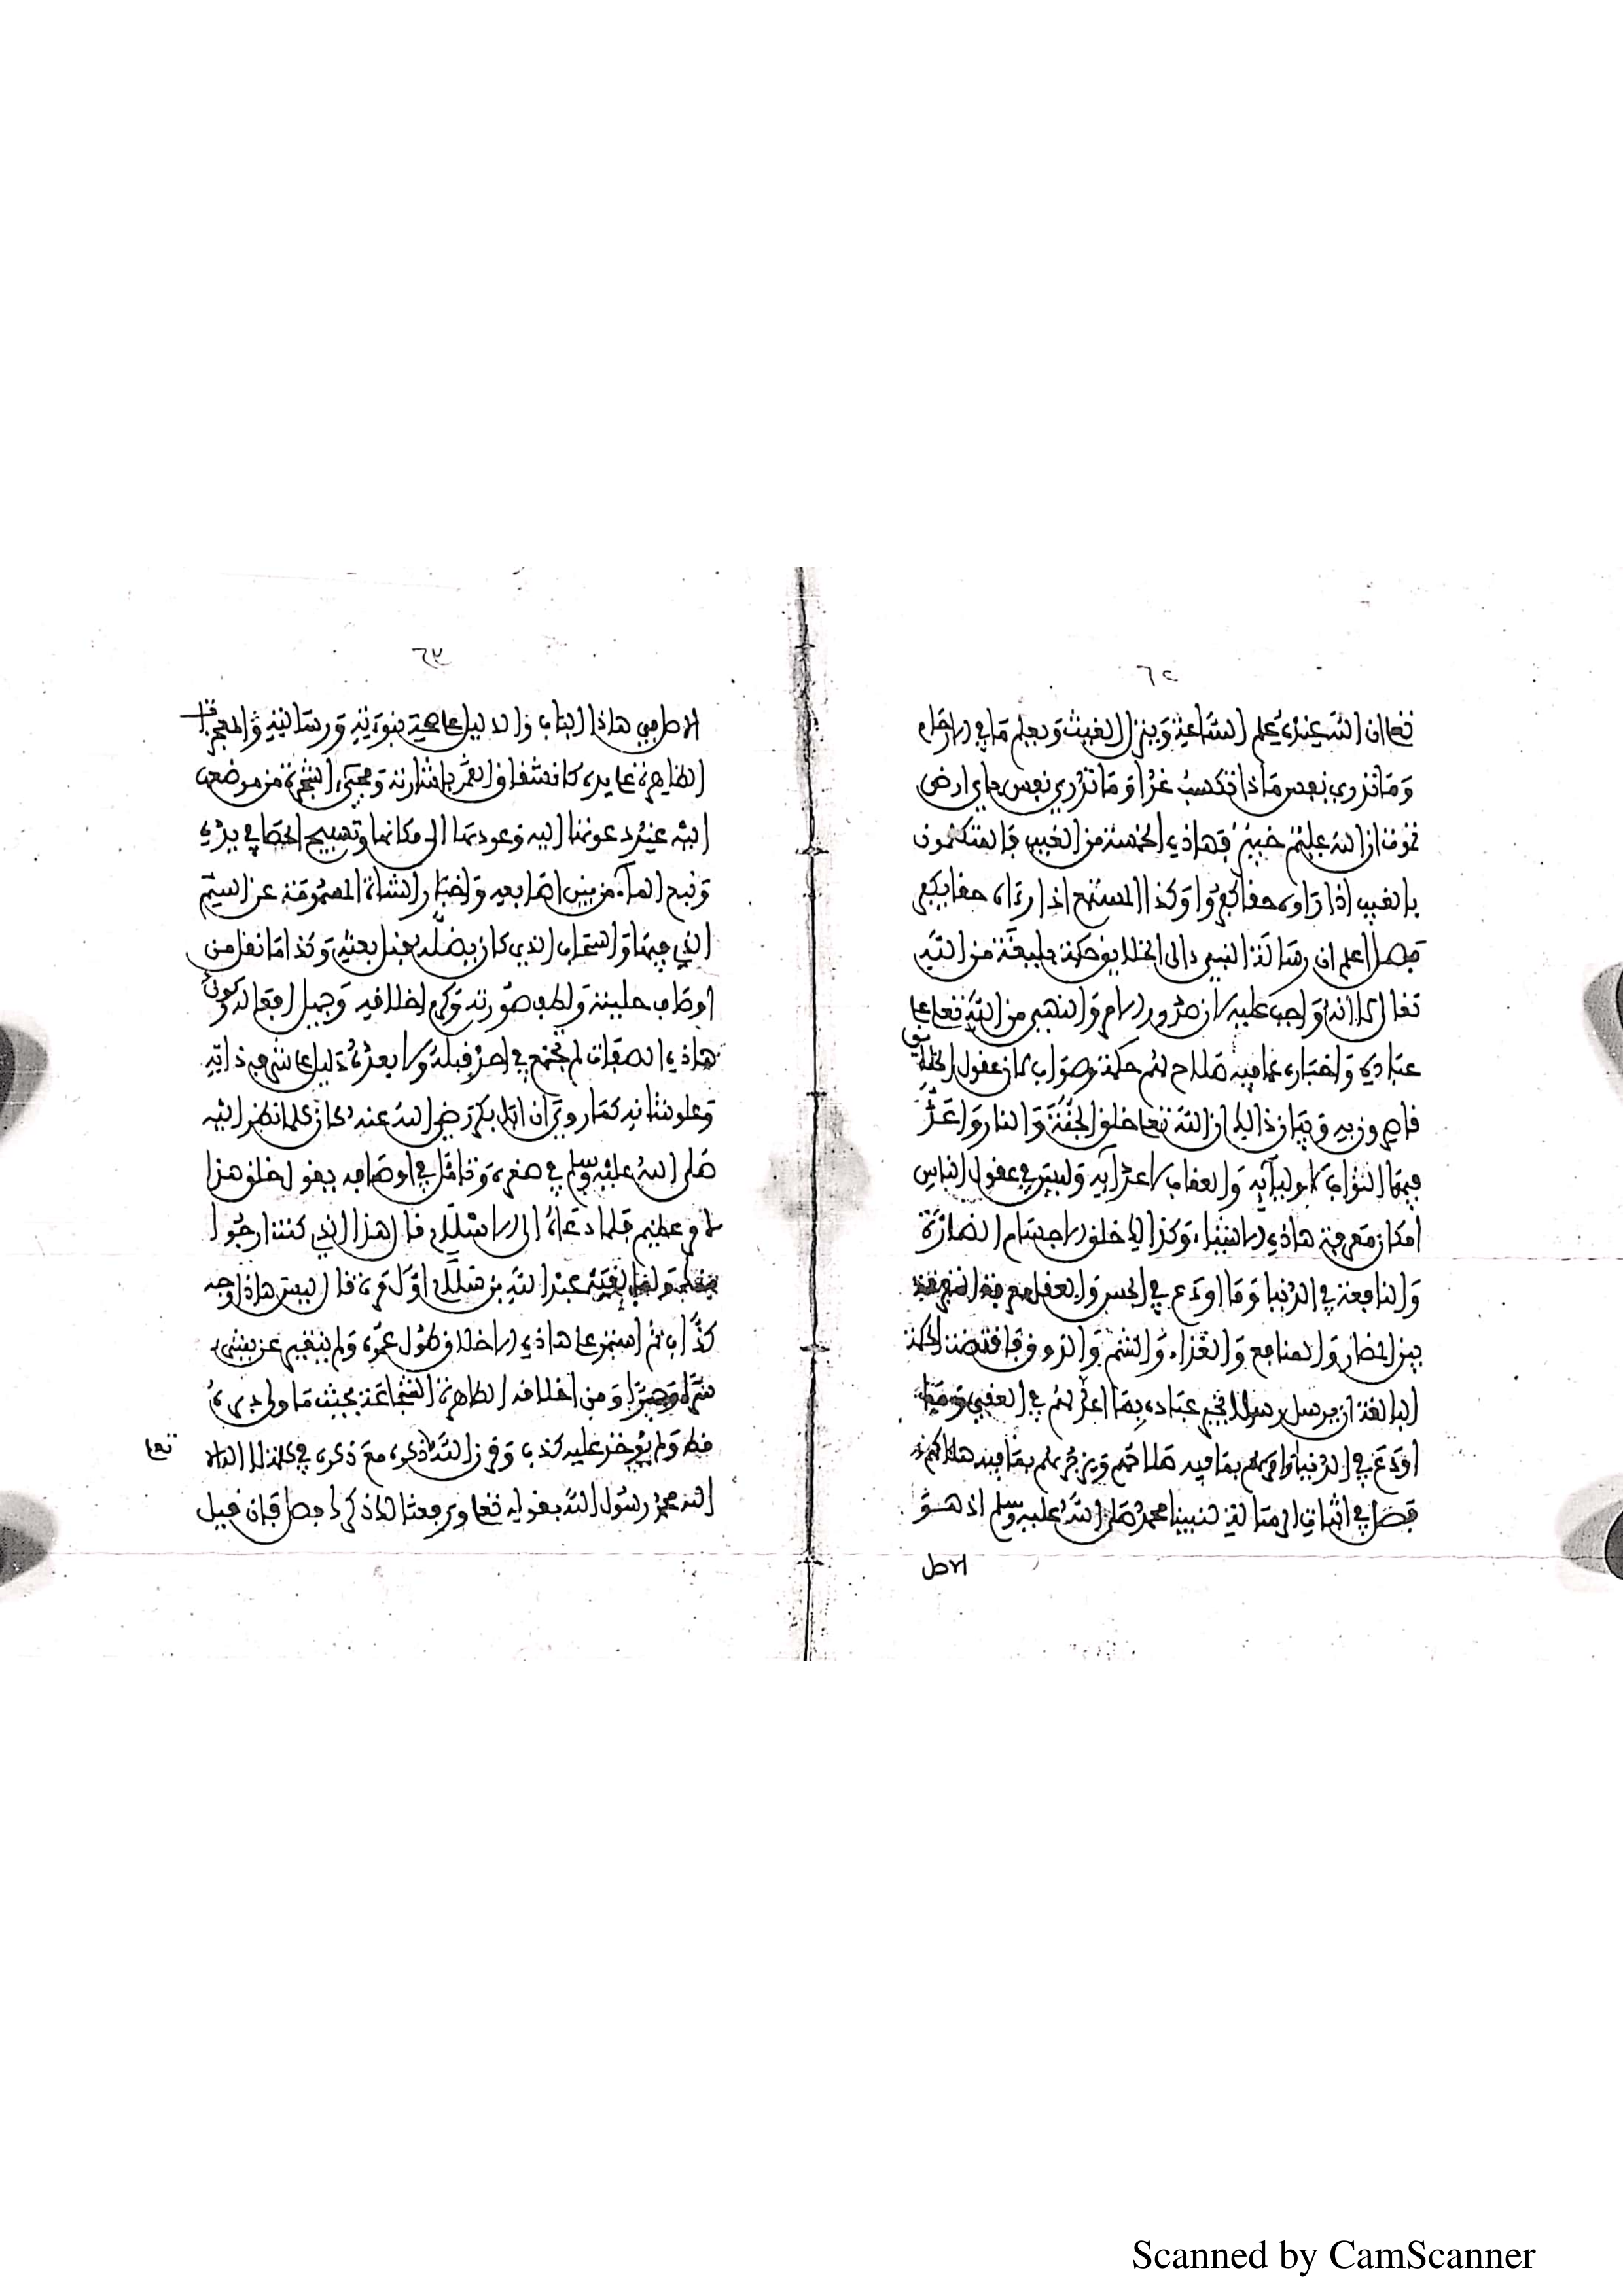 ٦٢
تعالى ان الله عنده علم الساعة وينزل الغيث ويعلم ما في الارحام
وما تدري نفس ماذا تكسب غدا وما تدري نفس باي ارض
تموت ان الله عليم خبير فهاذه الخمسة من الغيب فالمتكلمون
بالغيب اذا رءاوه حقا كفروا وكذا المستمع اذا رءاه حقا يكفر
فصل اعلم ان رسالة النبيين الى الخلايق حكمة بليغة من الله
تعالى الا انه واجب عليه لان صدور الامر والنهي من الله تعالى على
عباده واخباره بما فيه صلاح لهم حكمة وصواب لان عقول الخلايق
قاصرون به وبيان ذالك ان الله تعالى خلق الجنة والنار واعد
فيهما الثواب لاوليآيه والعقاب لاعدآيه وليس في عقول الناس
امكان معرفة هاذه الاشياء وكذالك خلق الاجسام الضارة
والنافعة في الدنيا وما اودع في الحس والعقل
بين المضار والمنافع والغذاء والسم والدوء فاقتضت الحكمة
البالغة ان يرسل رسولا يخبر عباده بما اعد لهم في العقبى وما
اودع في الدنيا وامرهم بما فيه صلاحهم ويزجرهم بما فيه هلاكهم
فصل في اثبات الرسالة لنبينا محمد صلى الله عليه وسلم اذ هو
الاصل
٦٣
الاصل في هاذا الباب والدليل على صحة نبوءته ورسالته والمعجزات
الظاهرة على يده كانشقاق القمر باشارته ومجيء الشجرة من موضعها
اليه عند دعوتها اليه وعودتها الى مكانها وتسبيح الحصا في يده
ونبع الماء من بين اصابعه واخبار الشاة المسمومة عن السم
الذي فيها والسحاب الذي كان يضله قبل بعثه وكذا ما نقل من
اوصاف حليته ولطف صورته وكرم اخلافه وجميل افعاله كون
هاذه الصفات لم تجتمع في احد قبله ولا بعده دليل على شرف ذاته
وعلو شانه كما روي ان ابا بكر رضي الله عنه كان كلما نظر اليه
صلى الله عليه وسلم في صغره وتامل في اوصافه يقول خلق هذا
لامر عظيم فلما دعاه الى الاسلام قال هذا الذي كنت ارجوا
عبد الله بن سلام اول مرة قال ليس هاذا وجه
كذاب ثم استمر على هاذه الاخلاق طول عمره ولم يتغير عن شيء
ومن اخلافه الطاهرة الشجاعة بحيث ما ولى دبره
قط ولم يوخذ عليه كذب وقرن الله ذكره مع ذكره في كلمة لا اله الا
تعالى
الله محمد رسول الله بقوله تعالى ورفعنا لك ذكرك فصل فان قيل
Scanned by CamScanner